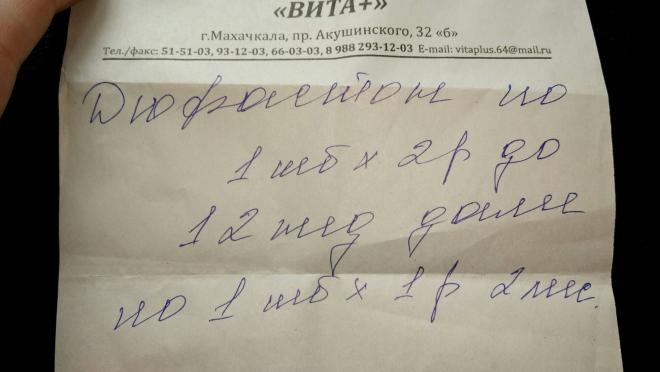 «ВИТА+»
г.Махачкала, пр. Акушинского, 32 «б»
Тел./факс: 51-51-03, 93-12-03, 66-03-03, 8 988 293-12-03 E-mail: vitaplus.64@mail.ru
Дюфастон по
1 тб х 2р до
12 нед далее
по 1 тб х 1р 2 нед.